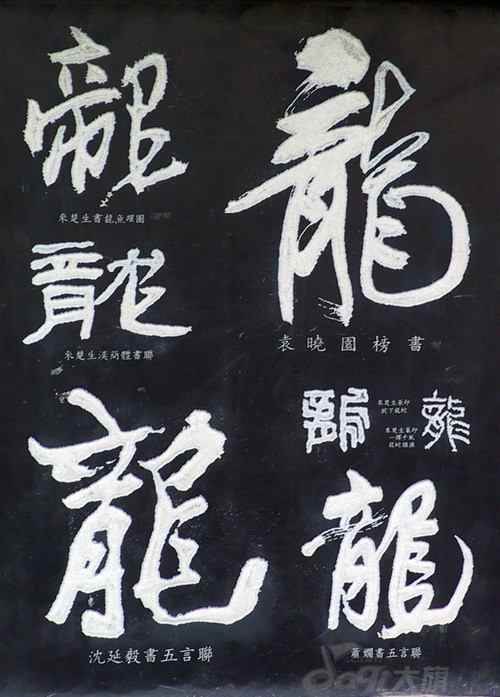 龍
朱楚生書龍魚曜圖
龍
朱楚生漢簡體書聯
龍
袁曉園榜書
龍
朱楚生篆印
腕下龍蛇
龍
朱楚生篆印
龍
沈延毅書五言聯
龍
蕭嫻書五言聯
dagi大旗